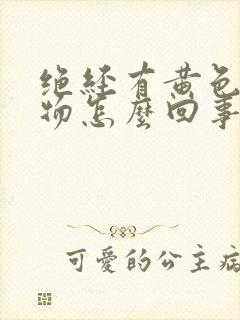 绝经有黄色
物怎麼回事
可愛的公主病